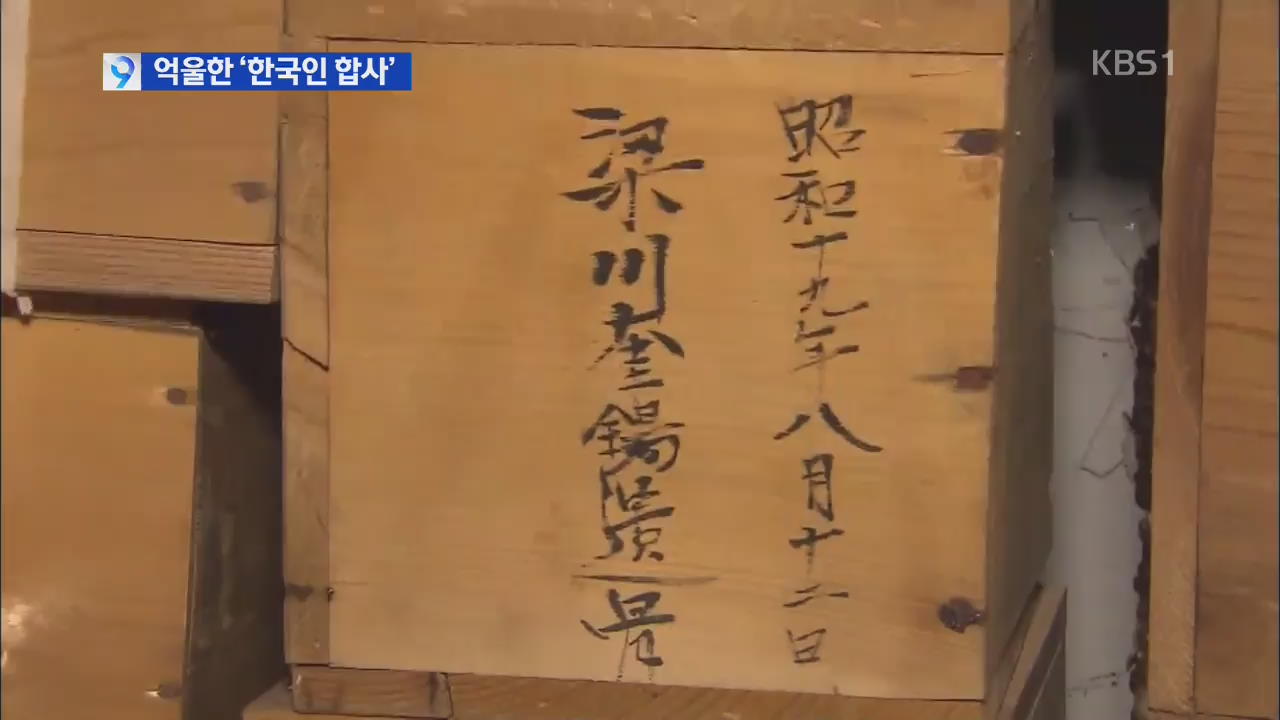 9 억울한 ‘한국인 합사’
KBS1
昭和十九年八月十二日
梁川奎